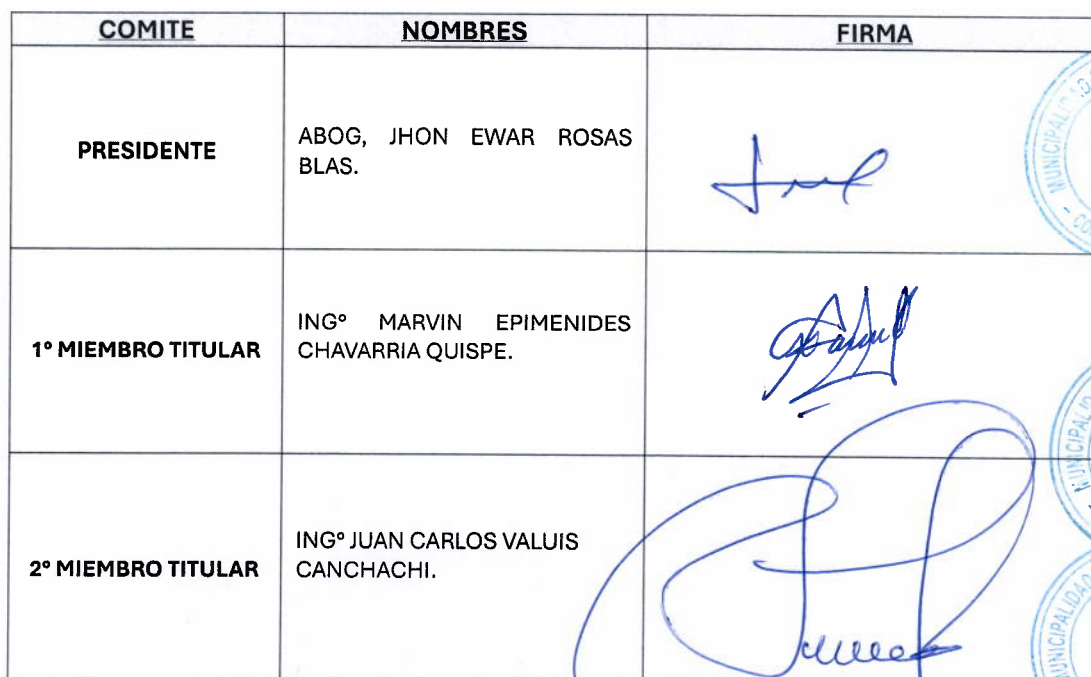 COMITE NOMBRES FIRMA
PRESIDENTE
ABOG, JHON EWAR ROSAS
BLAS.
1º MIEMBRO TITULAR
INGº MARVIN EPIMENIDES
CHAVARRIA QUISPE.
2º MIEMBRO TITULAR
INGº JUAN CARLOS VALUIS
CANCHACHI.
MUNICIPALIDAD
MUNICIPALIDAD
MUNICIPALIDAD